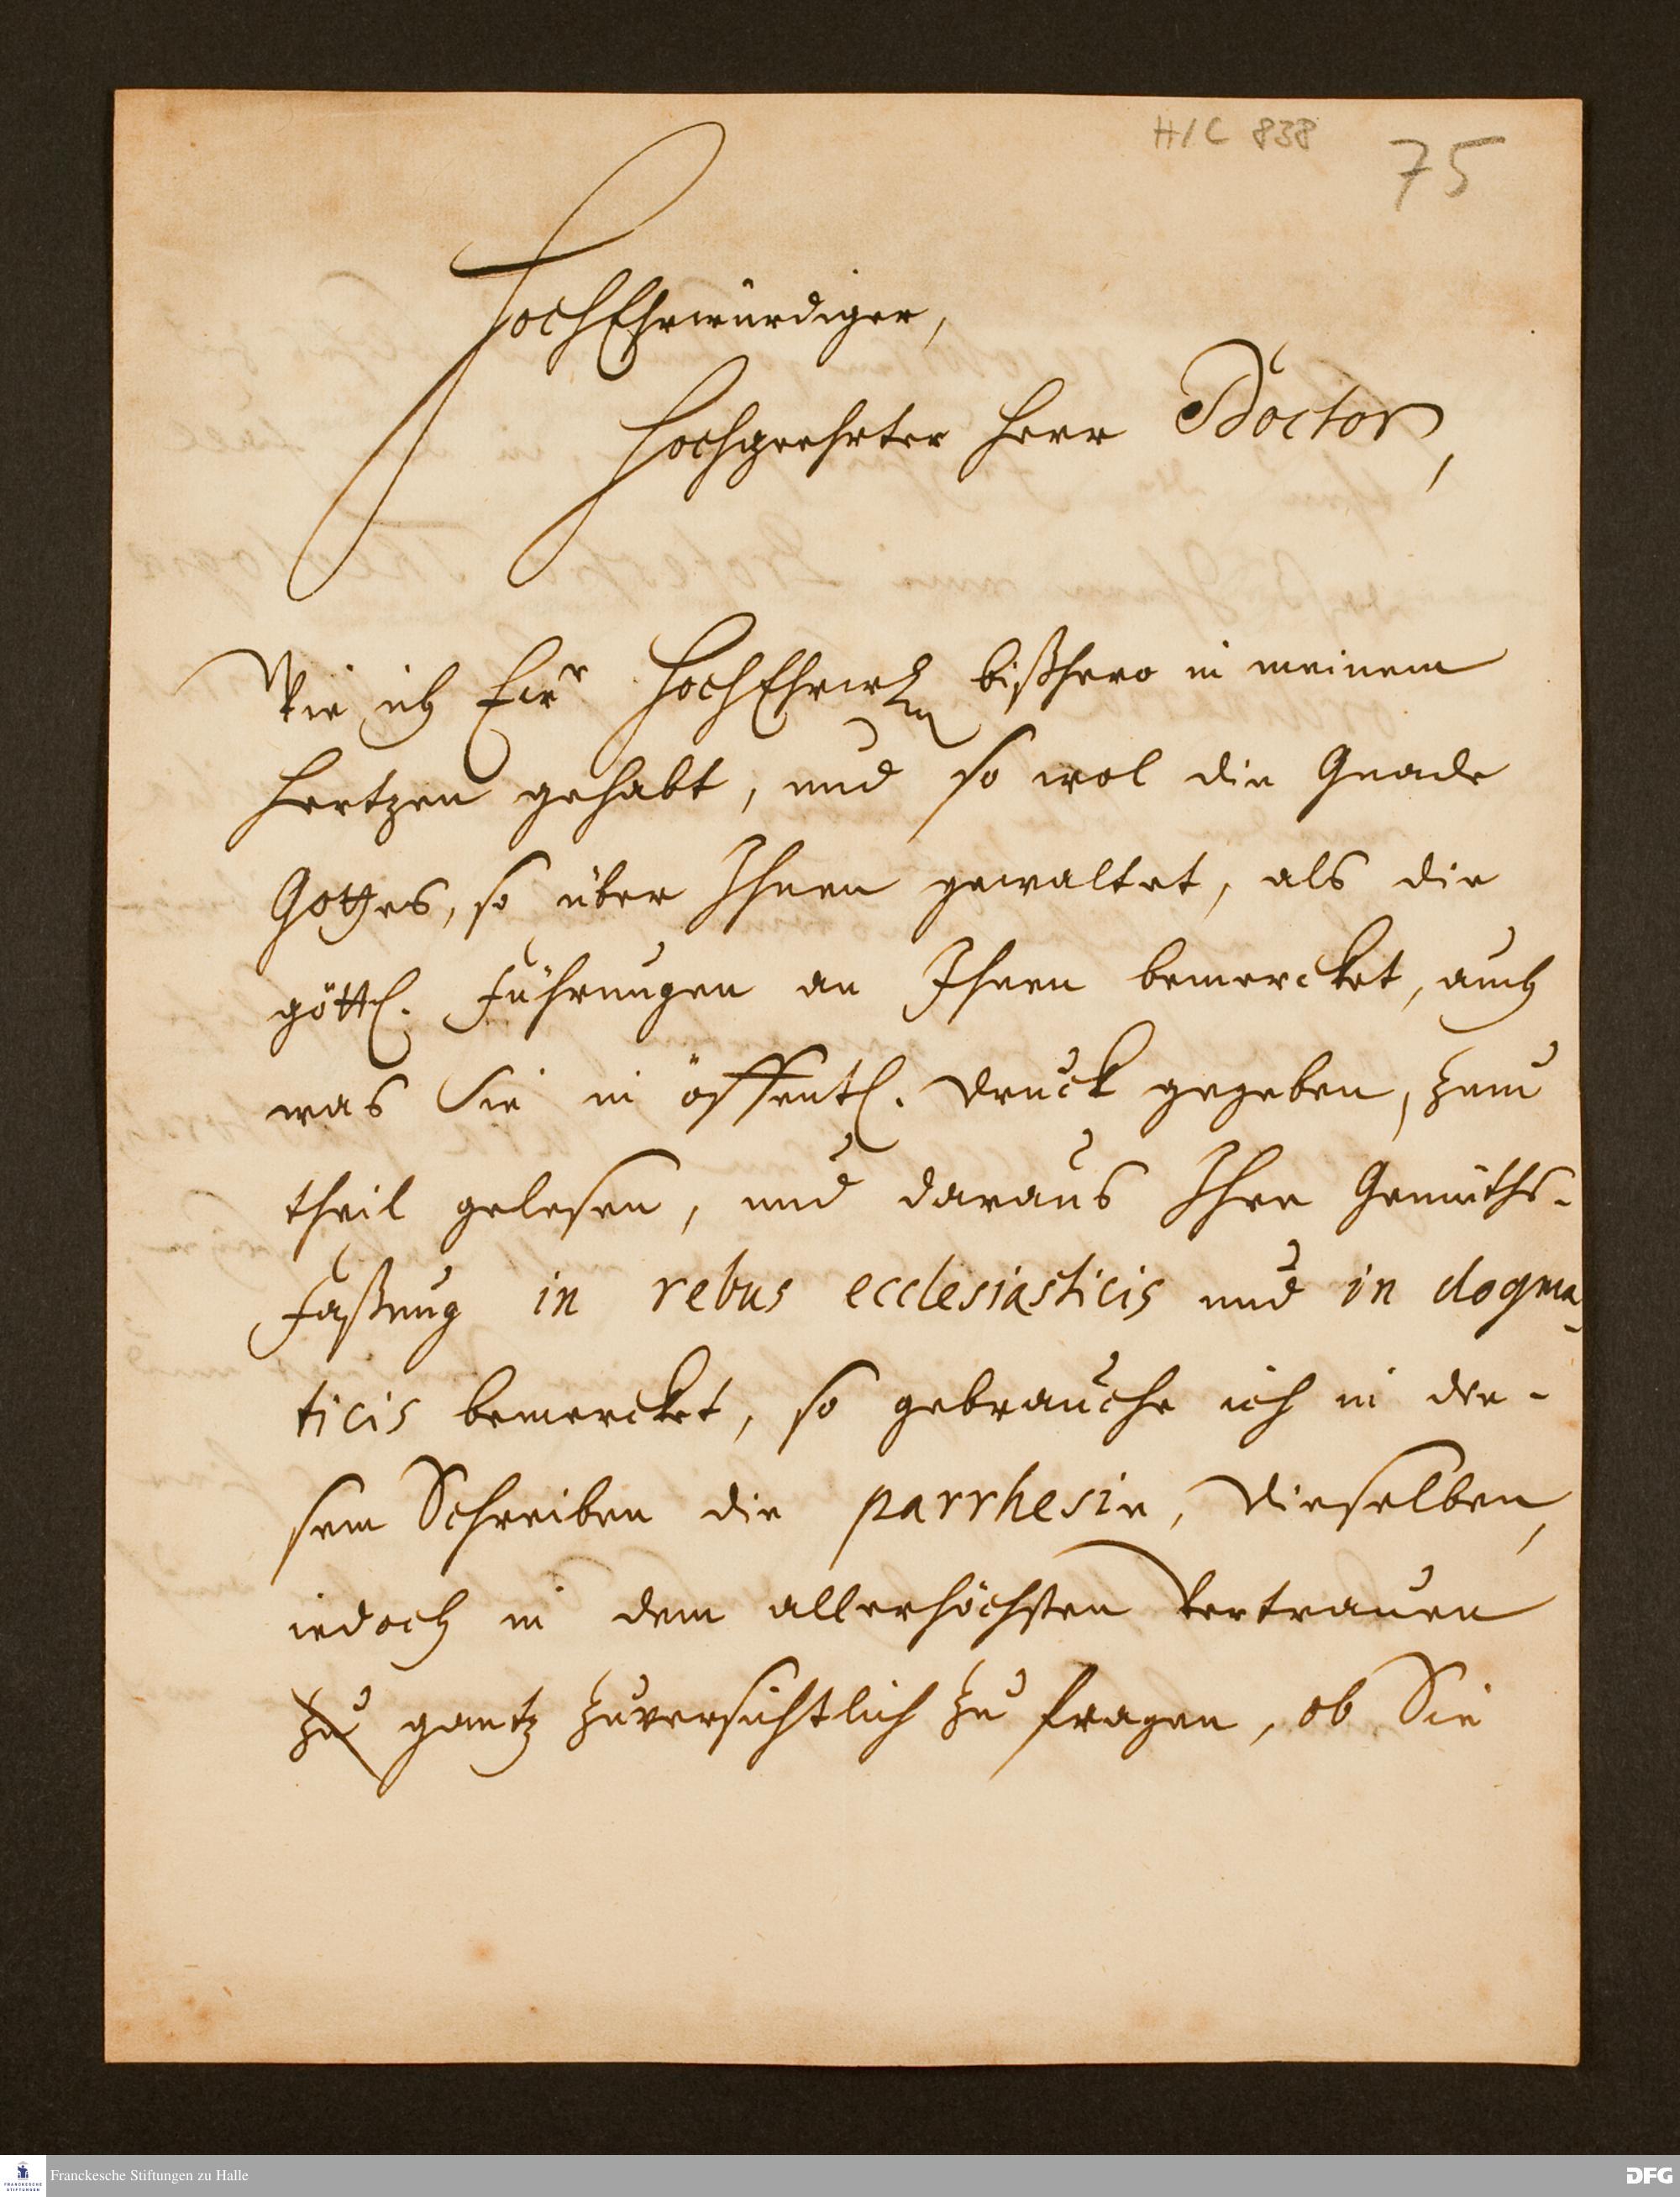 H/C 838
75
HochEhrwürdiger,
Hochgeehrter Herr Doctor,
Wie ich Ewr HochEhrw. bißhero in meinem
Hertzen gehabt, und so wol die Gnade
Gottes, so über Ihnen gewaltet, als die
göttl. Führungen an Ihnen bemercket, auch
was Sie in öffentl. Druck gegeben, zum
theil gelesen, und daraus Ihre Gemüths-
Faßung in rebus ecclesiasticis und in dogma-
ticis bemercket, so gebrauche ich in die-
sem Schreiben die parrhesie, Dieselben,
iedoch in dem allerhöchsten Vertrauen
zu gantz zuversichtlich zu fragen, ob Sie
Franckesche Stiftungen zu Halle
FRANCKESCHE
STIFTUNGEN
DFG